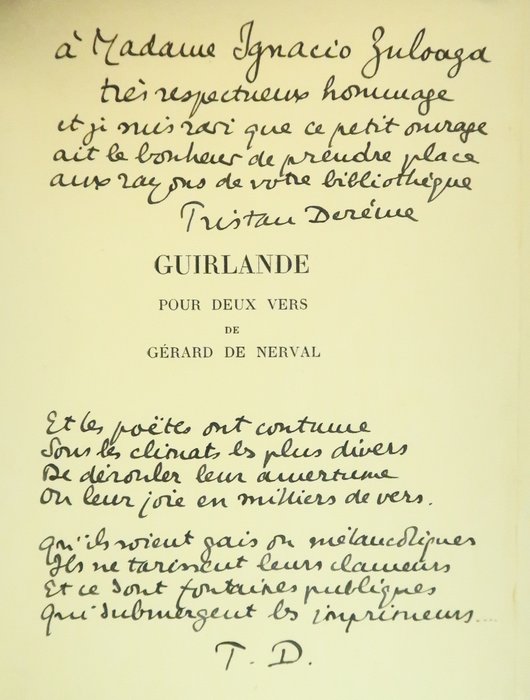 à Madame Ignacio Zuloaga
très respectueux hommage
et je suis ravi que ce petit ouvrage
ait le bonheur de prendre place
aux rayons de votre bibliothèque
Tristan Derème
GUIRLANDE
POUR DEUX VERS
DE
GÉRARD DE NERVAL
Et les poëtes ont coutume
Sous les climats les plus divers
De dérouler leur amertume
Ou leur joie en milliers de vers.
Qu'ils soient gais ou mélancoliques
Ils ne tarissent leurs clameurs
Et ce sont fontaines publiques
Qui submergent les imprimeurs....
T. D.